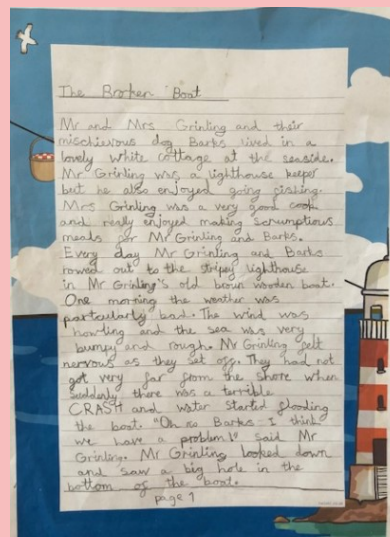 The Broken Boat
Mr and Mrs Grinling and their
mischievous dog Barks lived in a
lovely white cottage at the seaside.
Mr Grinling was a lighthouse keeper
but he also enjoyed going fishing.
Mrs Grinling was a very good cook
and really enjoyed making scrumptious
meals for Mr Grinling and Barks.
Every day Mr Grinling and Barks
rowed out to the stripey lighthouse
in Mr Grinling's old brown wooden boat.
One morning the weather was
particularly bad. The wind was
howling and the sea was very
bumpy and rough. Mr Grinling felt
nervous as they set off. They had not
got very far from the shore when
suddenly there was a terrible
CRASH and water started flooding
the boat. "Oh no Barks I think
we have a problem!" said Mr
Grinling. Mr Grinling looked down
and saw a big hole in the
bottom of the boat.
page 1